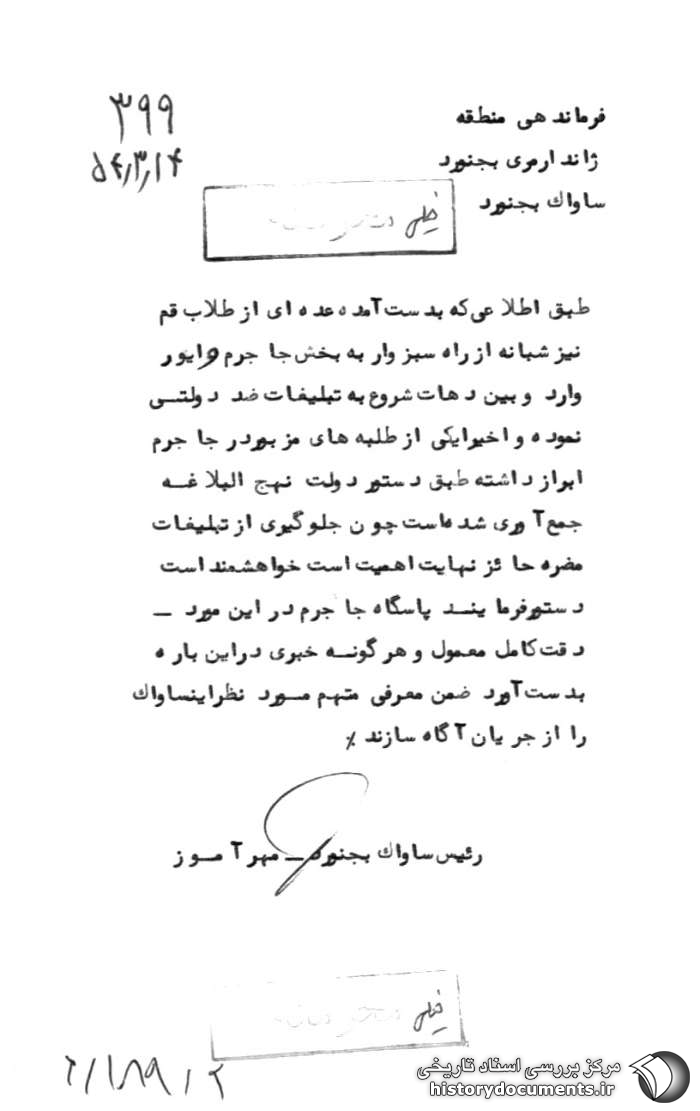 ۳۹۹
۵۴/۳/۱۴
فرماندهی منطقه
ژاندارمری بجنورد
ساواك بجنورد
خیلی محرمانه
طبق اطلاعی که بدست آمده عده ای از طلاب قم
نیز شبانه از راه سبزوار به بخش جاجرم و ایور
وارد و بین دهات شروع به تبلیغات ضد دولتی
نموده و اخیرا یکی از طلبه های مزبور در جاجرم
ابراز داشته طبق دستور دولت نهج البلاغه
جمع آوری شده است چون جلوگیری از تبلیغات
مضره حائز نهایت اهمیت است خواهشمند است
دستور فرمایند پاسگاه جاجرم در این مورد ــ
دقت کامل معمول و هرگونه خبری در این باره
بدست آورد ضمن معرفی متهم مورد نظر اینساواك
را از جریان آگاه سازند ٪
رئیس ساواك بجنورد ــ مهرآموز
خیلی محرمانه
مرکز بررسی اسناد تاریخی
historydocuments.ir